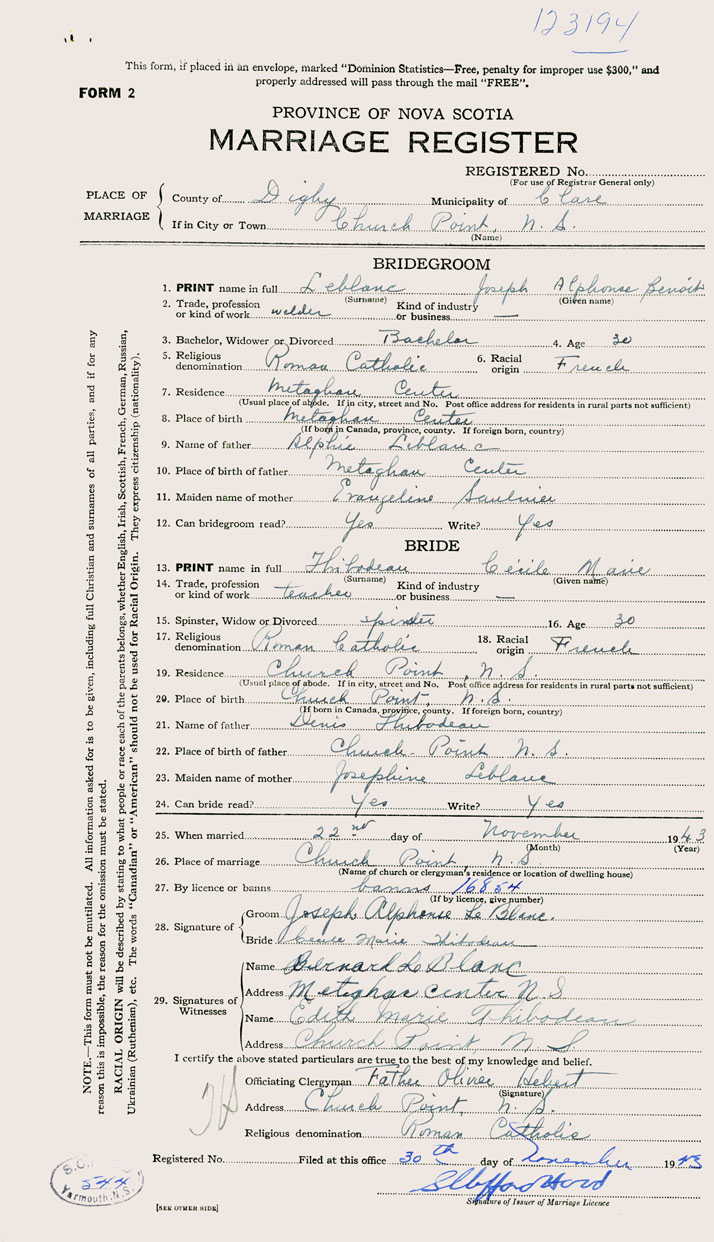 123194
This form, if placed in an envelope, marked "Dominion Statistics—Free, penalty for improper use $300," and
properly addressed will pass through the mail "FREE".
FORM 2
PROVINCE OF NOVA SCOTIA
MARRIAGE REGISTER
REGISTERED No.
(For use of Registrar General only)
PLACE OF MARRIAGE
County of Digby Municipality of Clare
If in City or Town Church Point, N.S.
(Name)
BRIDEGROOM
1. PRINT name in full Leblanc Joseph Alphonse Benoit
(Surname) (Given name)
2. Trade, profession or kind of work welder Kind of industry or business —
3. Bachelor, Widower or Divorced Bachelor 4. Age 30
5. Religious denomination Roman Catholic 6. Racial origin French
7. Residence Metaghan Center
(Usual place of abode. If in city, street and No. Post office address for residents in rural parts not sufficient)
8. Place of birth Metaghan Center
(If born in Canada, province, county. If foreign born, country)
9. Name of father Alphie Leblanc
10. Place of birth of father Metaghan Center
11. Maiden name of mother Evangeline Saulnier
12. Can bridegroom read? Yes Write? Yes
BRIDE
13. PRINT name in full Thibodeau Cécile Marie
(Surname) (Given name)
14. Trade, profession or kind of work teacher Kind of industry or business —
15. Spinster, Widow or Divorced spinster 16. Age 30
17. Religious denomination Roman Catholic 18. Racial origin French
19. Residence Church Point, N.S.
(Usual place of abode. If in city, street and No. Post office address for residents in rural parts not sufficient)
20. Place of birth Church Point, N.S.
(If born in Canada, province, county. If foreign born, country)
21. Name of father Denis Thibodeau
22. Place of birth of father Church Point N.S.
23. Maiden name of mother Josephine Leblanc
24. Can bride read? Yes Write? Yes
25. When married 22nd day of November 1943
(Month) (Year)
26. Place of marriage Church Point N.S.
(Name of church or clergyman's residence or location of dwelling house)
27. By licence or banns banns 16854
(If by licence, give number)
28. Signature of
Groom Joseph Alphonse Le Blanc.
Bride Marie Thibodeau
29. Signatures of Witnesses
Name Bernard Le Blanc
Address Meteghan center N S
Name Edith Marie Thibodeau
Address Church Point N S
I certify the above stated particulars are true to the best of my knowledge and belief.
Officiating Clergyman Father Olivier Hebert
(Signature)
Address Church Point, N.S.
Religious denomination Roman Catholic
Registered No. Filed at this office 30th day of November 1943
Signature of Issuer of Marriage Licence
[SEE OTHER SIDE]
544
Yarmouth, N.S.
NOTE.—This form must not be mutilated. All information asked for is to be given, including full Christian and surnames of all parties, and if for any
reason this is impossible, the reason for the omission must be stated.
RACIAL ORIGIN will be described by stating to what people or race each of the parents belongs, whether English, Irish, Scottish, French, German, Russian,
Ukrainian (Ruthenian), etc. The words "Canadian" or "American" should not be used for Racial Origin. They express citizenship (nationality).